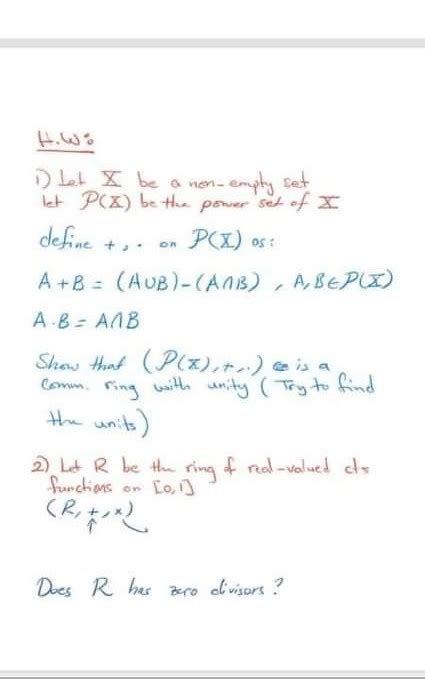 H.W:
1) Let X be a non-empty set
let P(X) be the power set of X
define +, . on P(X) as:
A + B = (A∪B)-(A∩B) , A,B∈P(X)
A.B = A∩B
Show that (P(X),+,.) is a
comm. ring with unity (Try to find
the units)
2) Let R be the ring of real-valued cts
functions on [0,1]
(R,+,x)
Does R has zero divisors?